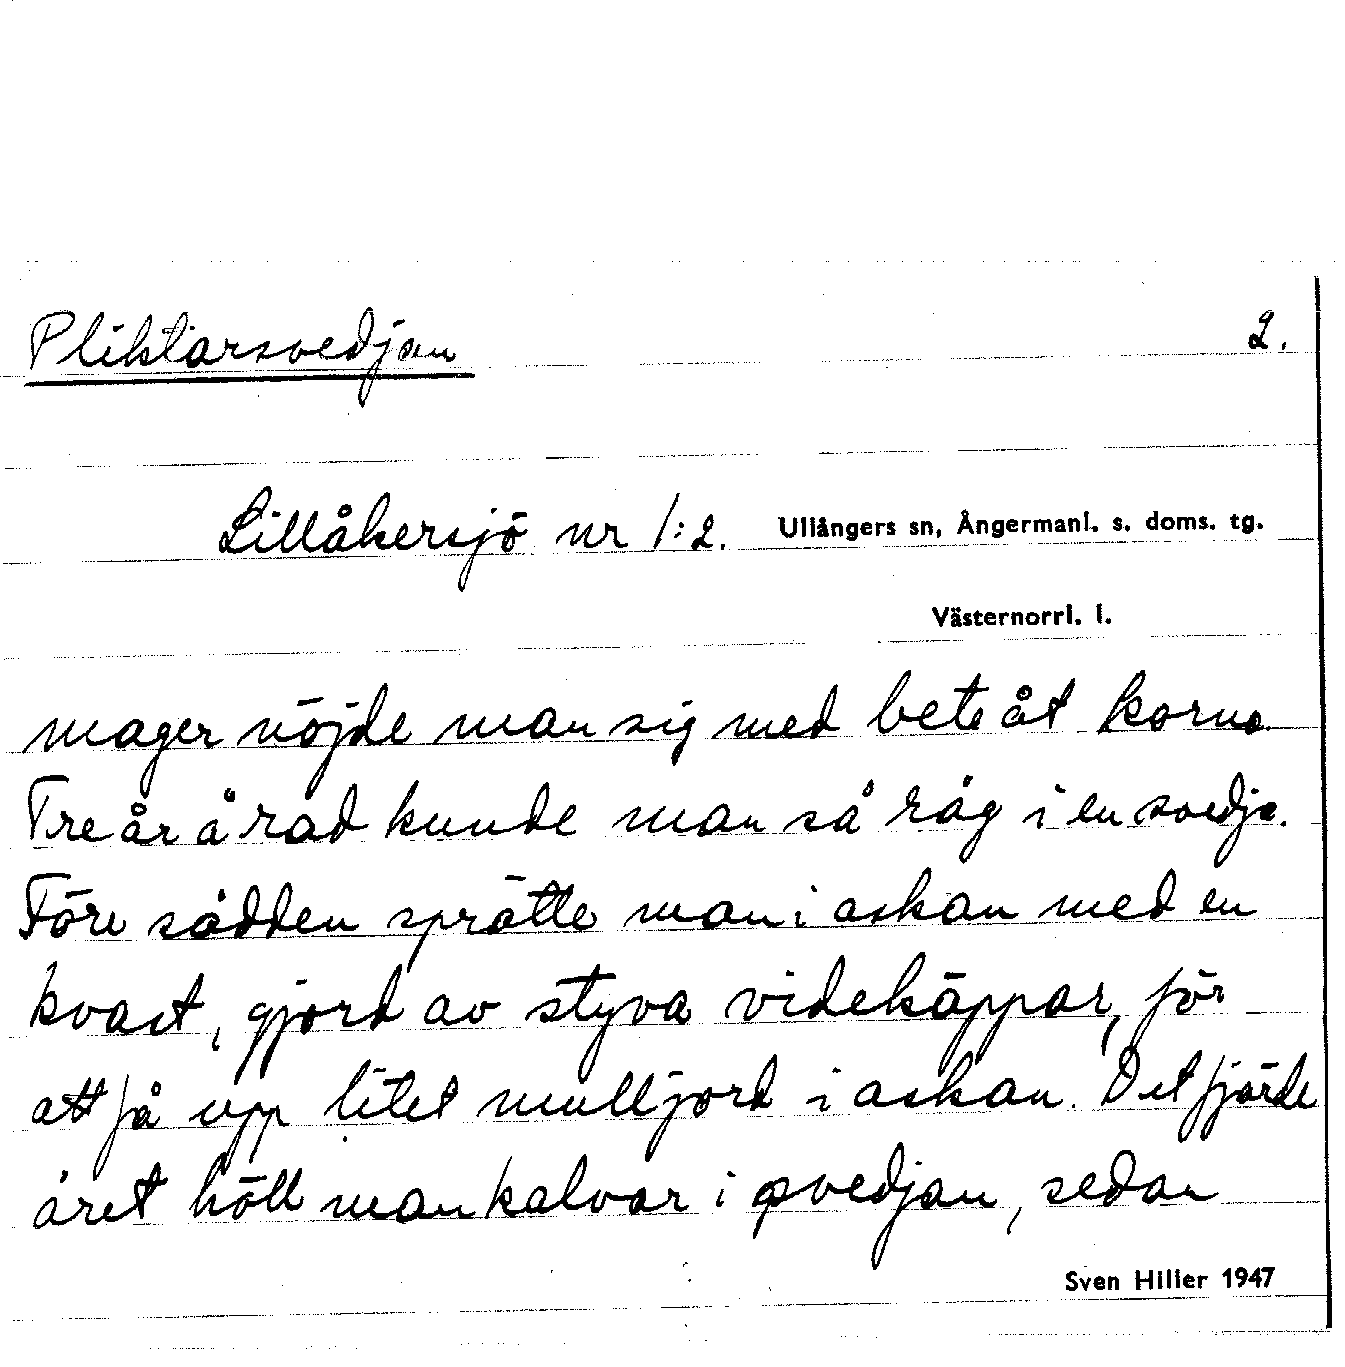 Pliktarsvedjan 2.
Lillåkersjö nr 1:2. Ullångers sn, Ångermanl. s. doms. tg.
Västernorrl. l.
mager nöjde man sig med bete åt korna.
Tre år å rad kunde man så råg i en svedja.
Före sådden sprätte man i askan med en
kvast, gjord av styva videkäppar, för
att få upp litet mulljord i askan. Det fjärde
året höll man kalvar i svedjan, sedan
Sven Hiller 1947